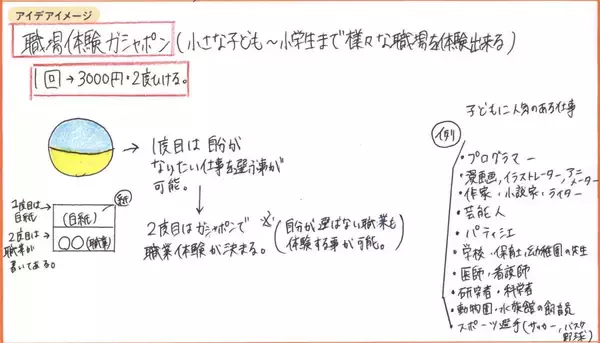 アイデアイメージ
職場体験ガシャポン(小さな子ども～小学生まで様々な職場を体験出来る)
1回→3000円・2度引ける。
1度目は自分が
なりたい仕事を選ぶ事が
可能。
2度目はガシャポンで
職業体験が決まる。
※(自分が選ばない職業も
体験する事が可能。)
紙
1度目は
白紙
(白紙)
2度目は
職業が
書いてある。
○○(職業)
子どもに人気のある仕事
例
・プログラマー
・漫画、イラストレーター、アニメーター
・作家・小説家・ライター
・芸能人
・パティシエ
・学校・保育士・幼稚園の先生
・医師・看護師
・研究者・科学者
・動物園・水族館の飼育員
スポーツ選手(サッカー、バスケ
野球)